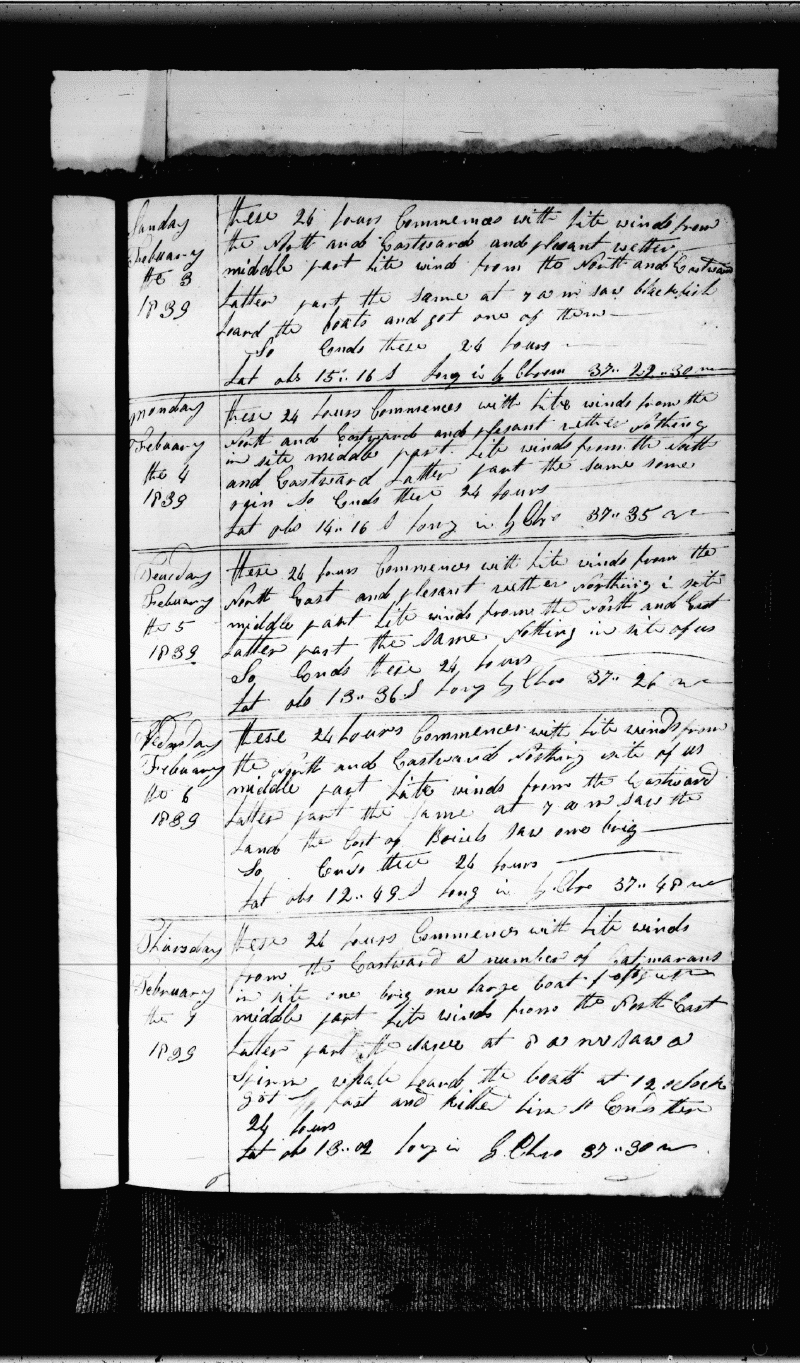 Sunday
February
the 3
1839
these 24 hours Commences with lite winds from
the North and Eastward and plesant wether
middle part lite winds from the North and Eastward
Latter part the same at 7 a m saw blackfish
loard the boats and got one of them
So Ends these 24 hours
Lat obs 15.. 16 S Long in by Chrom 37.. 22.. 30
monday
Febuary
the 4
1839
these 24 hours Commences with lite winds from the
North and Eastward and plesant wether Nothing
in site middle part lite winds from the North
and Eastward Latter part the same some
So Ends these 24 hours
Lat obs 14.. 16 S Long in by Chro 37.. 35
Teusday
February
the 5
1839
these 24 hours Commences with lite winds from the
North East and plesant wether Northing i site
middle part lite winds from the North and East
Latter part the same Nothing in site of us
So Ends these 24 hours
Lat obs 13.. 36 S Long by Chro 37.. 26
Wednsday
February
the 6
1839
these 24 hours Commences with lite winds from
the North and Eastward Nothing site of us
middle part Lite winds from the Eastward
Latter part the same at 7 a m saw the
Land the Cost of saw one brig
So Ends these 24 hours
Lat obs 12.. 49 S Long in by Chro 37.. 48
Thirsday
February
the 7
1839
these 24 hours Commences with lite winds
from the Eastward a number of Catmarans
in site one brig one large boat
middle part lite winds from the North East
Latter part the same at 8 a m saw a
Spirm whale loard the boats at 12 oclock
got fast and killed him So Ends these
24 hours
Lat obs 13.. 02 Long in by Chro 37.. 30